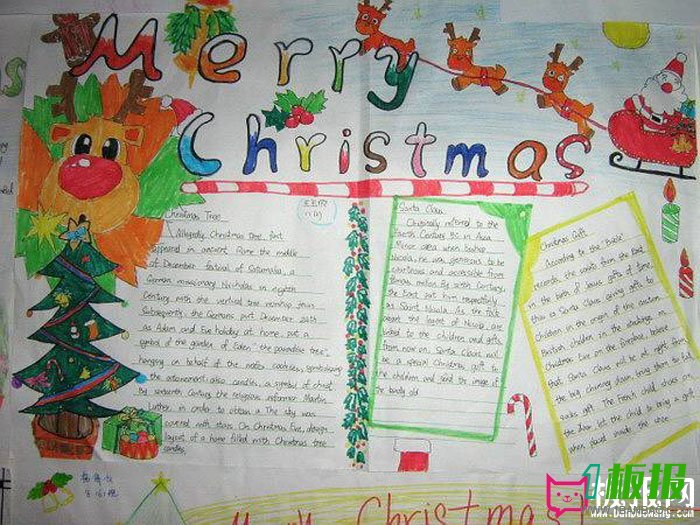 Merry
Christmas
Christmas Tree
Allegedly Christmas tree first
appeared in ancient Rome the middle
of December festival of Saturnalia, a
German missionary Nicholas in eighth
Century with the vertical tree
Subsequently, the Germans put December 24th
as Adam and Eve holiday at home, put a
symbol of the garden of Eden "the paradise tree"
hanging on behalf of the cookies, symbolizing
the atonement: also candles, a symbol of christ
by sixteenth Century the religious reformer Martin
Luther in order to obtain a The sky was
covered with stars On Christmas Eve, design
layout of a home filled with Christmas tree
candles.
Santa Claus
Originally referred to the
Fourth Century BC in Asia
Minor area when bishop
Nicola, he was generous to be
courteous and accessible from
Roman
the East put him respectfully
as Saint Nicola. As the fast
linked to the children and gifts
from now on, Santa Claus will
be a special Christmas gift to
the children and send the image of
the kindly old
Christmas Gift
According to the "Bible"
records, the saints from the East
in the birth of Jesus gifts of time,
this is Santa Claus giving gifts to
children in the origin of the custom
British children in the stockings on
Christmas Eve on the fireplace, believe
that Santa Claus will be at night from
the big chimney down, bring them to full
socks gift. The French child shoes on
the door, let the child to bring a gift
when placed inside the shoe.
Merry Christmas
1板报
www.banbaowang.com